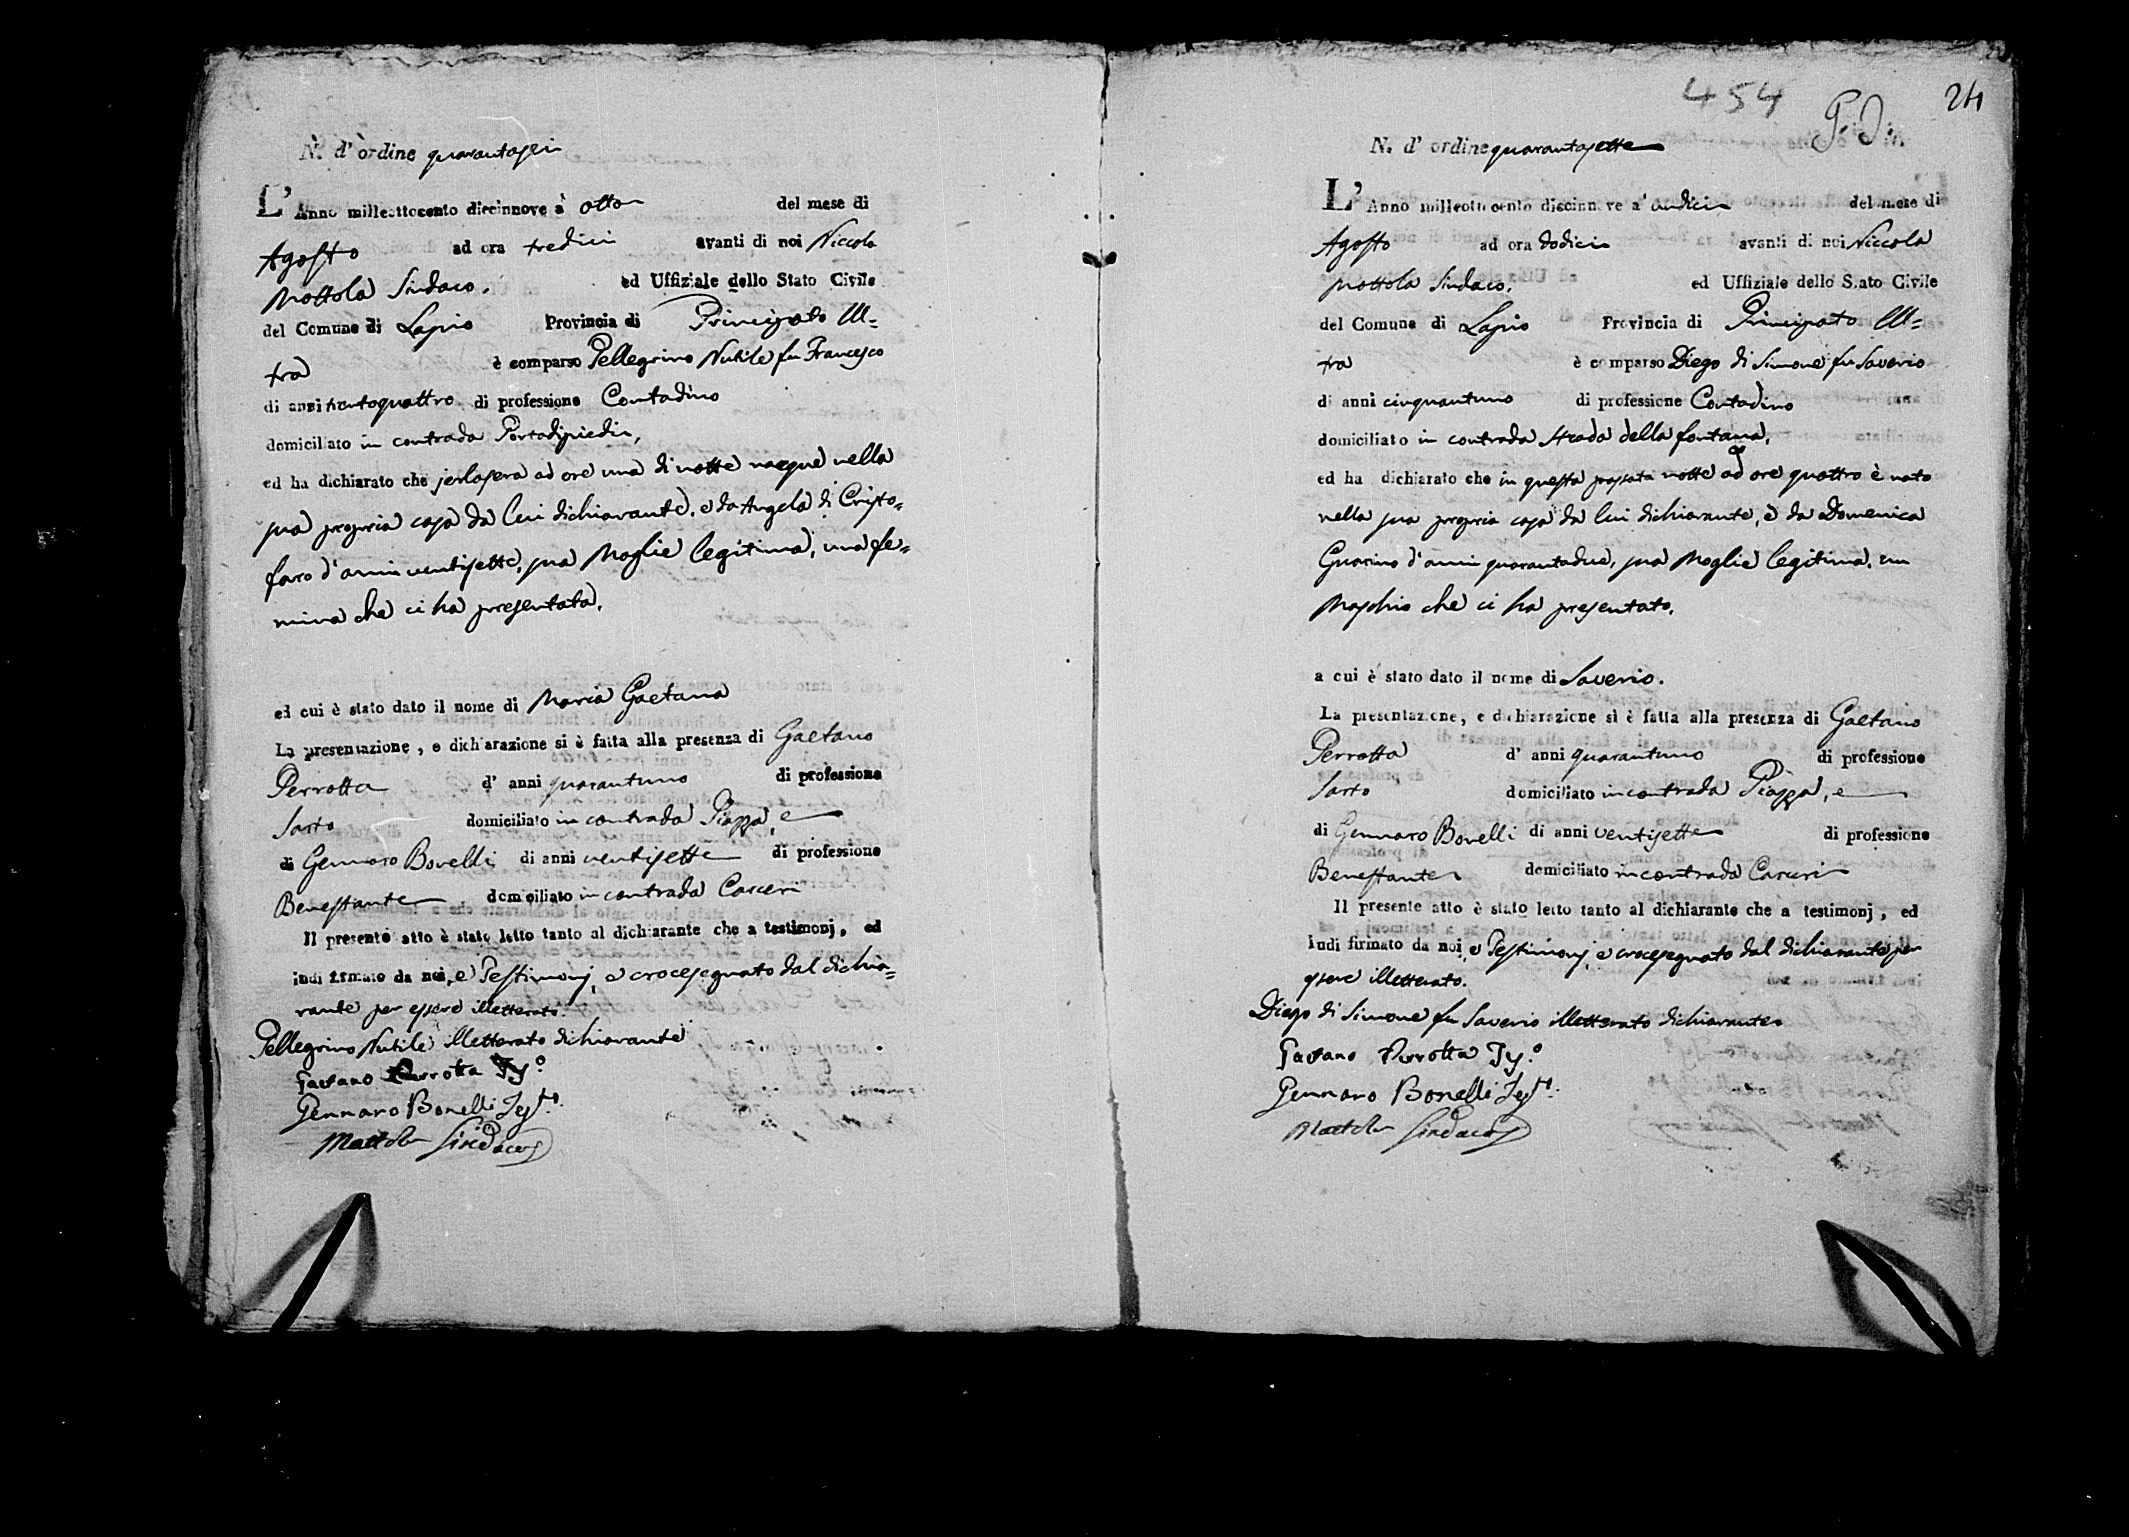 N.º d' òrdine quarantasei
L' Anno milleottocento diecinnove à otto del mese di
Agosto ad ora tredici avanti di noi Niccola
Mottola Sindaco. ed Uffiziale dello Stato Civile
del Comune di Lapio Provincia di Principato Ul=
tra è comparso Pellegrino Nutile fu Francesco
di anni trentaquattro di professione Contadino
domiciliato in contrada Portadipiedi,
ed ha dichiarato che jerlasera ad ore una di notte nacque nella
sua propria casa da lui dichiarante, e da Angela di Cristo=
faro d'anni ventisette, sua Moglie legitima, una fe=
mina che ci ha presentata.
ed cui è stato dato il nome di Maria Gaetana
La presentazione, e dichiarazione si è fatta alla presenza di Gaetano
Perrotta d' anni quarantuno di professione
Sarto domiciliato in contrada Piazza, e
di Gennaro Bonelli di anni ventisette di professione
Benestante domiciliato in contrada Carceri
Il presente atto è stato letto tanto al dichiarante che a testimonj, ed
indi firmato da noi, e Testimonj, e crocesegnato dal dichia=
rante per essere illetterato.
Pellegrino Nutile illetterato dichiarante
Gaetano Perrotta Ts.º
Gennaro Bonelli Test.º
Mottola Sindaco
454
24
N. d' ordine quarantasette
L' Anno milleottocento diecinnove a' undici del mese di
Agosto ad ora dodici avanti di noi Niccola
Mottola Sindaco. ed Uffiziale dello Stato Civile
del Comune di Lapio Provincia di Principato Ul=
tra è comparso Diego di Simone fu Saverio
di anni cinquantuno di professione Contadino
domiciliato in contrada Strada della fontana,
ed ha dichiarato che in questa passata notte ad ore quattro è nato
nella sua propria casa da lui dichiarante, e da Domenica
Guarino d'anni quarantadue, sua Moglie legitima, un
Maschio che ci ha presentato.
a cui è stato dato il nome di Saverio.
La presentazione, e dichiarazione si è fatta alla presenza di Gaetano
Perrotta d' anni quarantuno di professione
Sarto domiciliato in contrada Piazza, e
di Gennaro Bonelli di anni ventisette di professione
Benestante domiciliato in contrada Carceri
Il presente atto è stato letto tanto al dichiarante che a testimonj, ed
indi firmato da noi, e Testimonj, e crocesegnato dal dichiarante per
essere illetterato.
Diego di Simone fu Saverio illetterato dichiarante
Gaetano Perrotta Ts.º
Gennaro Bonelli Test.º
Mottola Sindaco